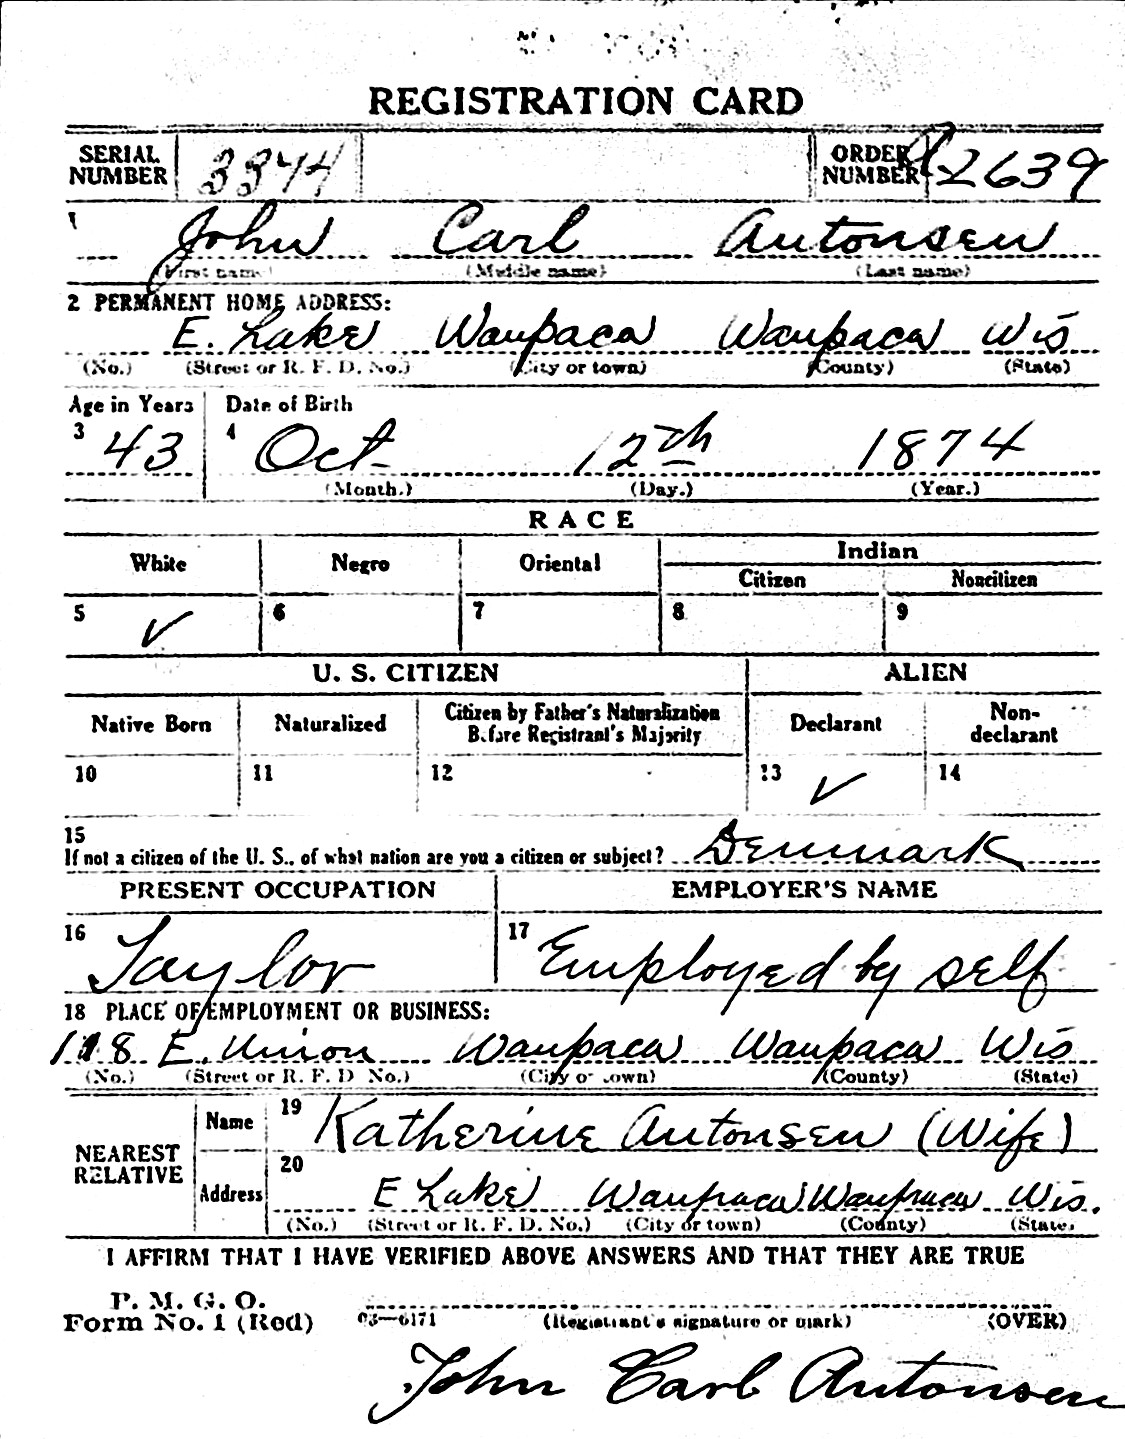 REGISTRATION CARD
SERIAL NUMBER 3374 ORDER NUMBER A2639
1 John Carl Antonsen
(First name) (Middle name) (Last name)
2 PERMANENT HOME ADDRESS:
E. Lake Waupaca Waupaca Wis
(No.) (Street or R. F. D. No.) (City or town) (County) (State)
Age in Years Date of Birth
3 43 4 Oct 12th 1874
(Month.) (Day.) (Year.)
RACE
White Negro Oriental Indian
Citizen Noncitizen
5 ✓ 6 7 8 9
U. S. CITIZEN ALIEN
Native Born Naturalized Citizen by Father's Naturalization Before Registrant's Majority Declarant Non-declarant
10 11 12 13 ✓ 14
15
If not a citizen of the U. S., of what nation are you a citizen or subject? Denmark
PRESENT OCCUPATION EMPLOYER'S NAME
16 Taylor 17 Employed by self
18 PLACE OF EMPLOYMENT OR BUSINESS:
118 E. Union Waupaca Waupaca Wis
(No.) (Street or R. F. D. No.) (City or town) (County) (State)
NEAREST RELATIVE
Name 19 Katherine Antonsen (Wife)
Address 20 E Lake Waupaca Waupaca Wis.
(No.) (Street or R. F. D. No.) (City or town) (County) (State)
I AFFIRM THAT I HAVE VERIFIED ABOVE ANSWERS AND THAT THEY ARE TRUE
P. M. G. O.
Form No. 1 (Red) 03—6171 (Registrant's signature or mark) (OVER)
John Carl Antonsen